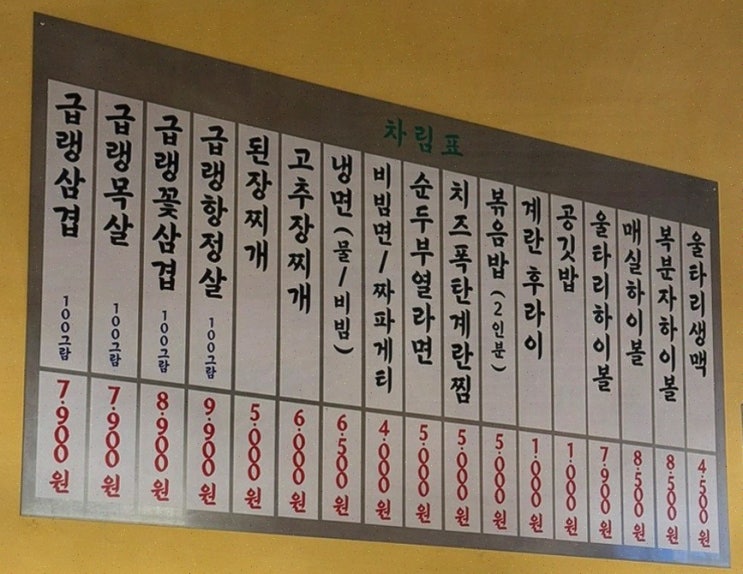 차림표
급랭삼겹 100그람 7.900원
급랭목살 100그람 7.900원
급랭꽃삼겹 100그람 8.900원
급랭항정살 100그람 9.900원
된장찌개 5.000원
고추장찌개 6.000원
냉면(물/비빔) 6.500원
비빔면/짜파게티 4.000원
순두부열라면 5.000원
치즈폭탄계란찜 5.000원
볶음밥(2인분) 5.000원
계란후라이 1.000원
공깃밥 1.000원
울타리하이볼 7.900원
매실하이볼 8.500원
복분자하이볼 8.500원
울타리생맥 4.500원